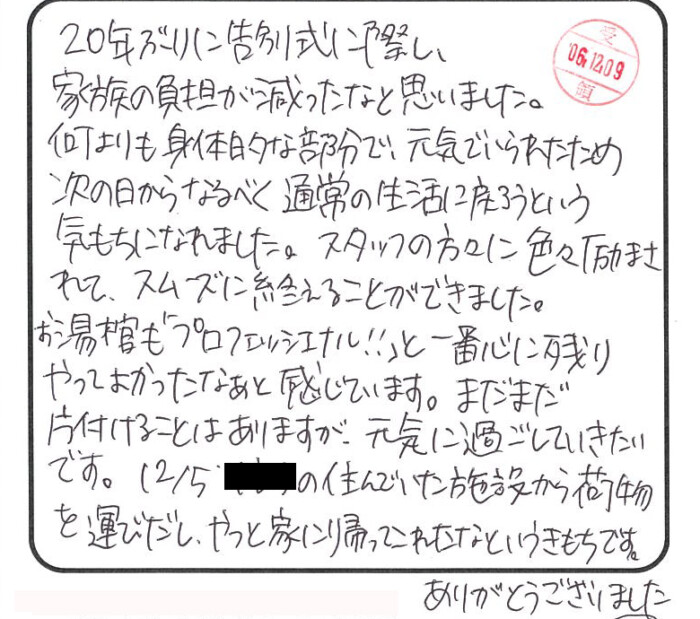 20年ぶりに告別式に際し、
受
'06.12.09
領
家族の負担が減ったなと思いました。
何よりも身体的な部分で、元気でいられたため
次の日からなるべく通常の生活に戻ろうという
気もちになれました。スタッフの方々に色々励まさ
れて、スムーズに終えることができました。
お湯棺も「プロフェッショナル!!」と一番心に残り
やってよかったなぁと感じています。まだまだ
片付けることはありますが、元気に過ごしていきたい
です。12/5 の住んでいた施設から荷物
を運びだし、やっと家に帰ってこれたなというきもちです。
ありがとうございました